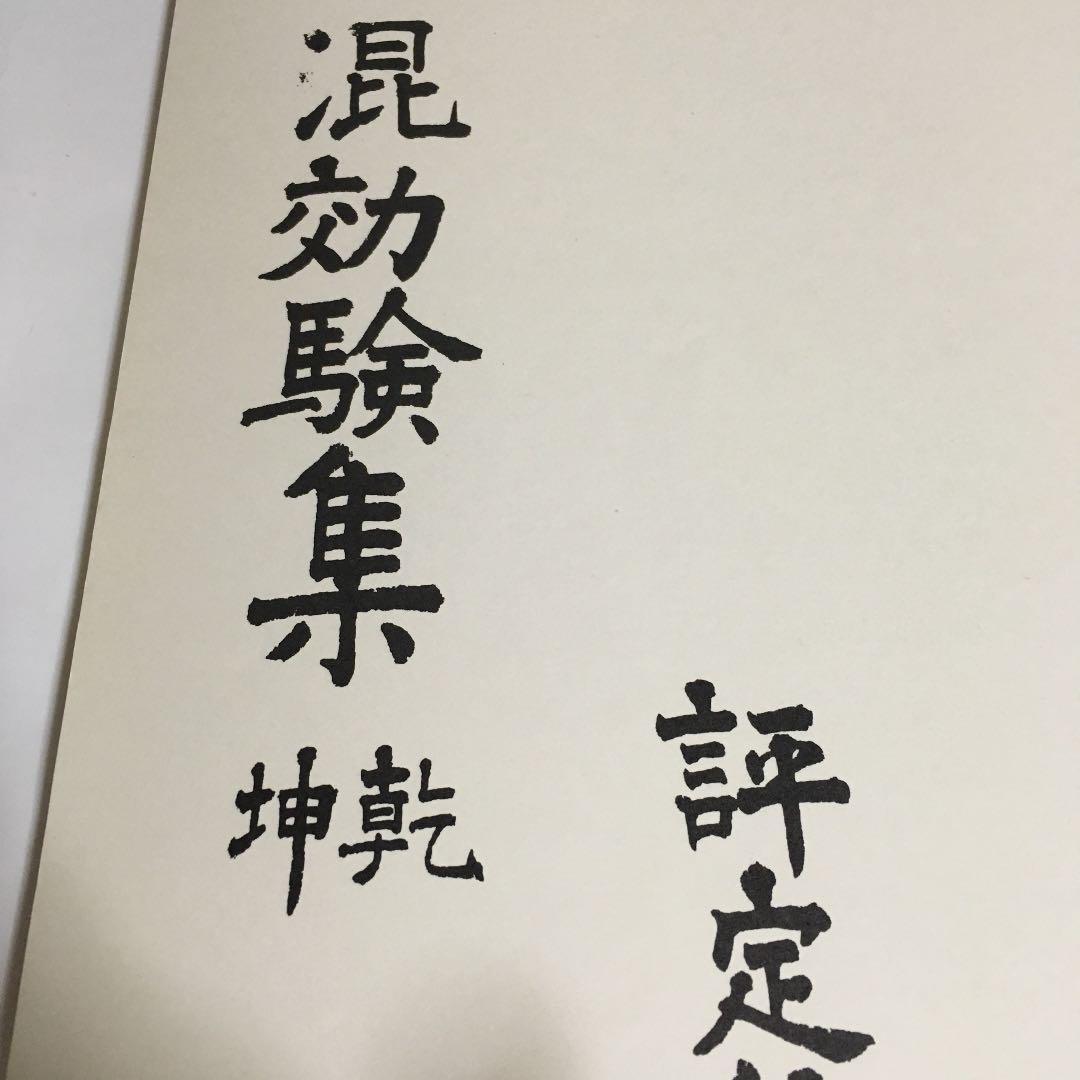 評定
混効験集
乾坤